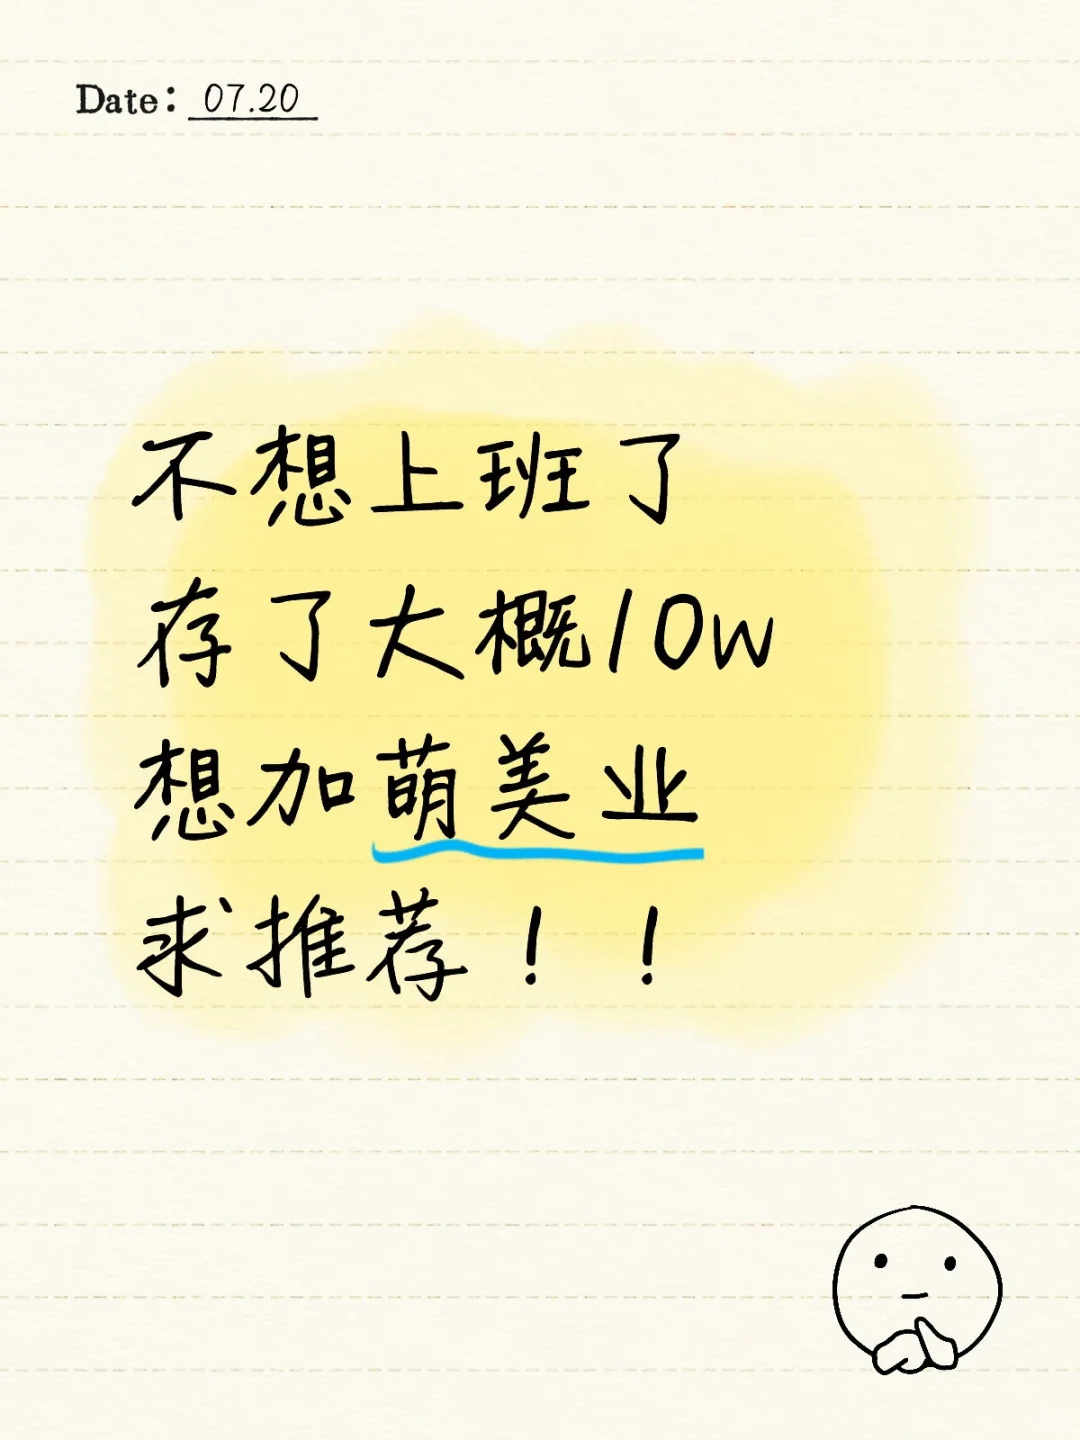 Date: 07.20
不想上班了
存了大概10w
想加萌美业
求推荐！！